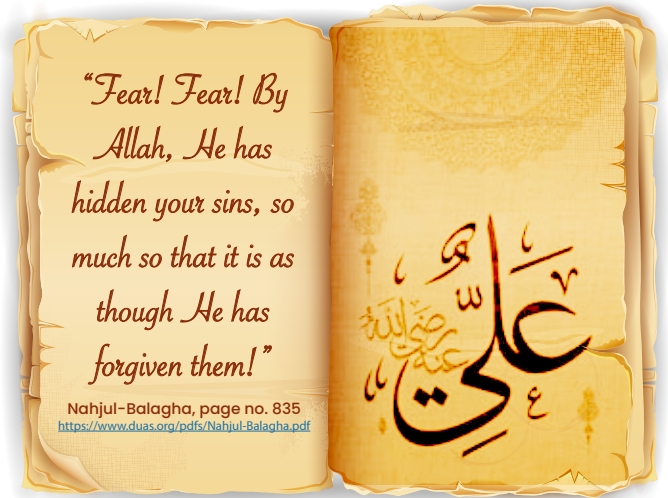 “Fear! Fear! By
Allah, He has
hidden your sins, so
much so that it is as
though He has
forgiven them!”
Nahjul-Balagha, page no. 835
https://www.duas.org/pdfs/Nahjul-Balagha.pdf
عَلِيّ
رضي الله
عنه